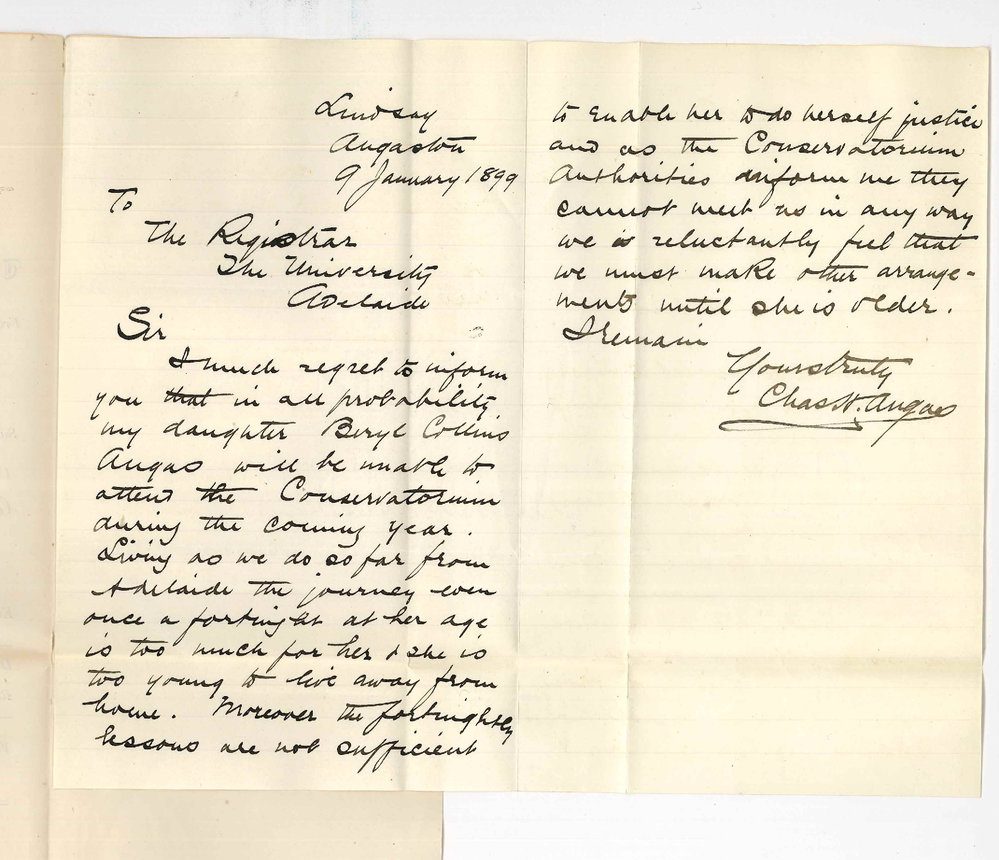 Lindsay
Angaston
9 January 1899
To
The Registrar
The University
Adelaide
Sir
I much regret to inform
you that in all probability
my daughter Beryl Collins
Angas will be unable to
attend the Conservatorium
during the coming year.
Living as we do so far from
Adelaide the journey even
once a fortnight at her age
is too much for her & she is
too young to live away from
home. Moreover the fortnightly
lessons are not sufficient
to enable her to do herself justice
and as the Conservatorium
Authorities inform me they
cannot meet us in any way
we reluctantly feel that
we must make other arrange-
ments until she is older.
I remain
Yours truly
Chas H. Angas